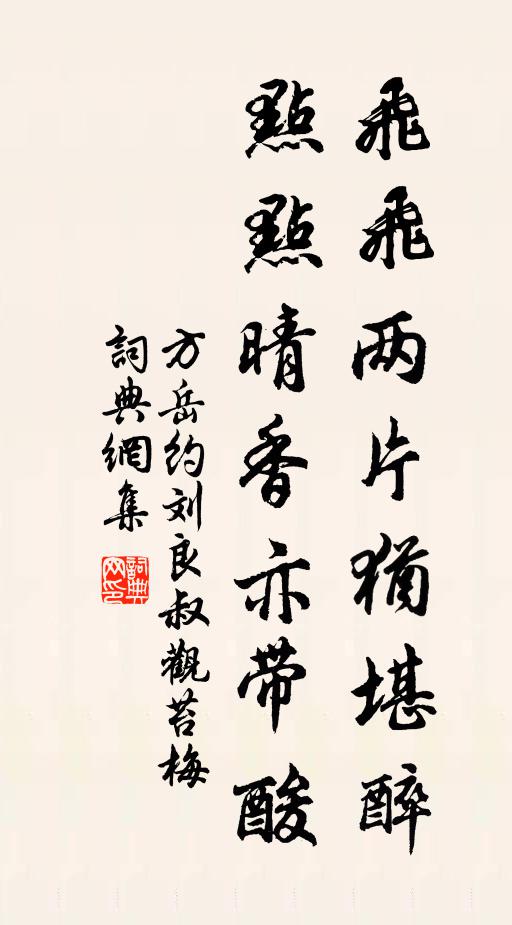 飛飛两片猶堪醉
點點晴香亦带酸
方岳约刘良叔觀苔梅
詞典網集
詞典网印